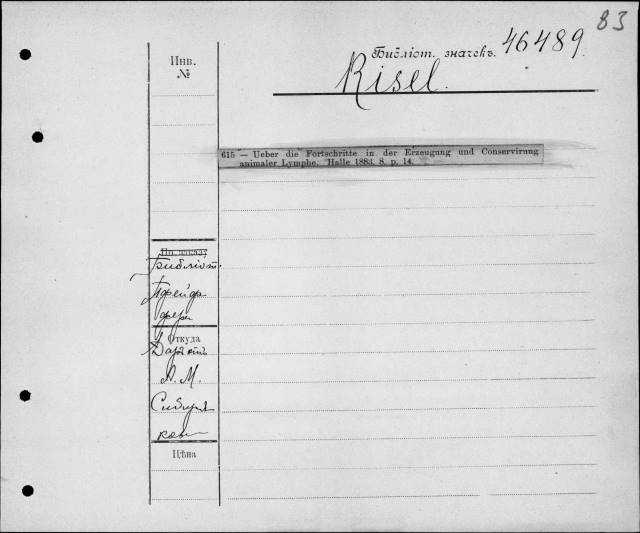 83
Библіот. значекъ. 46489.
Risel.
Инв.
№
615 — Ueber die Fortschritte in der Erzeugung und Conservirung
animaler Lymphe. Halle 1883. 8. p. 14.
По заказу
Библіот.
Пфейф-
фера
Откуда
Даръ отъ
А. М.
Сибиря-
кова
Цѣна